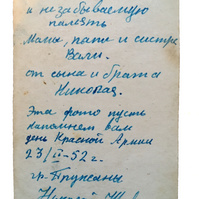 и незабываемую
память
Мамы, папе и сестре
Вали.
от сына и брата
Николая.
Это фото пусть
напомнет вам
день Красной Армии
23/II-52 г.
гр. Пружаны
Николай